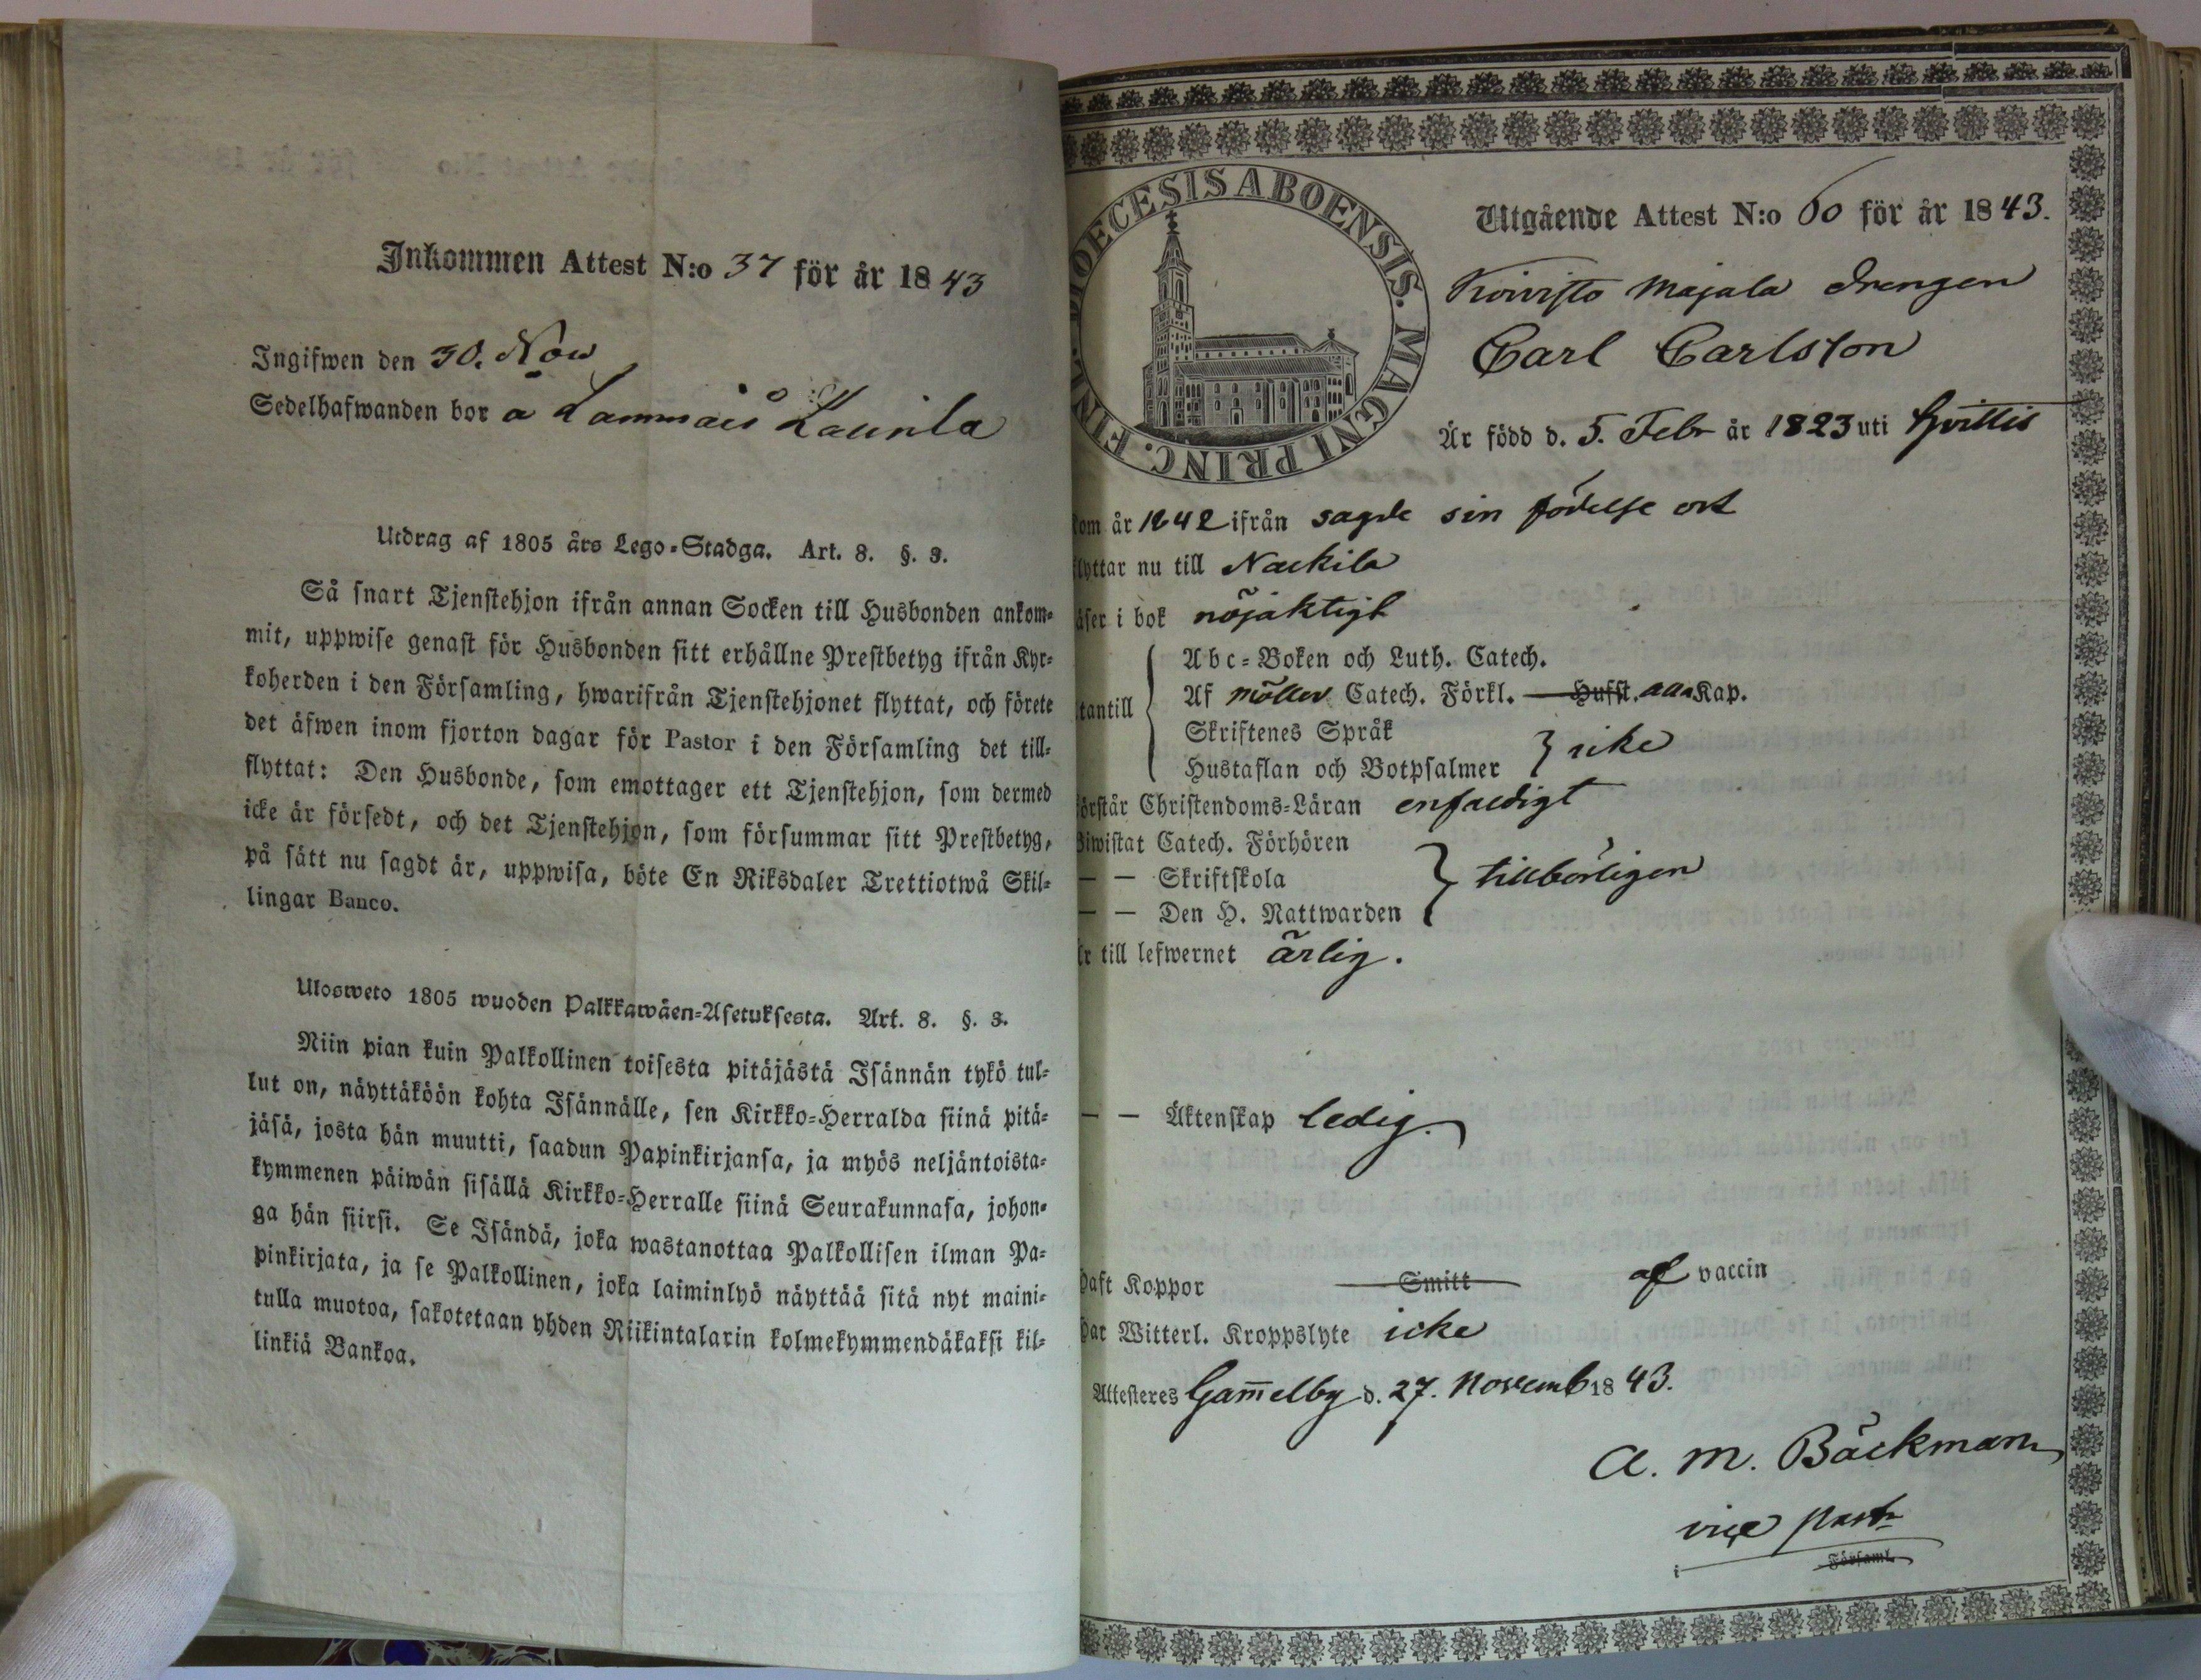 Inkommen Attest N:o 37 för år 1843
Ingifwen den 30. Nov
Sedelhafwanden bor å Lammais Kaurila
Utdrag af 1805 års Lego-Stadga. Art. 8. §. 3.
Så snart Tjenstehjon ifrån annan Socken till Husbonden ankom-
mit, uppwise genast för Husbonden sitt erhållne Prestbetyg ifrån Kyr-
koherden i den Församling, hwarifrån Tjenstehjonet flyttat, och förete
det äfwen inom fjorton dagar för Pastor i den Församling det till-
flyttat: Den Husbonde, som emottager ett Tjenstehjon, som dermed
icke är försedt, och det Tjenstehjon, som försummar sitt Prestbetyg,
på sätt nu sagdt är, uppwisa, böte En Riksdaler Trettiotwå Skil-
lingar Banco.
Ulosweto 1805 wuoden Palkkawäen-Asetuksesta. Art. 8. §. 3.
Niin pian kuin Palkollinen toisesta pitäjästä Isännän tykö tul-
lut on, näyttäköön kohta Isännälle, sen Kirkko-Herralda siinä pitä-
jäsä, josta hän muutti, saadun Papinkirjansa, ja myös neljäntoista-
kymmenen päiwän sisällä Kirkko-Herralle siinä Seurakunnasa, johon-
ga hän siirsi. Se Isändä, joka wastanottaa Palkollisen ilman Pa-
pinkirjata, ja se Palkollinen, joka laiminlyö näyttää sitä nyt maini-
tulla muotoa, sakotetaan yhden Riikintalarin kolmekymmendäkaksi kil-
linkiä Bankoa.
DIOECESIS ABOENSIS. MAGNI PRINC. FINL.
Utgående Attest N:o 60 för år 1843.
Koivisto Majala Drengen
Carl Carlsson
Är född d. 5. Febr år 1823 uti Hvittis
kom år 1842 ifrån sagde sin födelse ort
flyttar nu till Nackila
läser i bok nöjaktigt
utantill
Abc-Boken och Luth. Catech.
Af Möller Catech. Förkl. Husst. alla Kap.
Skriftenes Språk
Hustaflan och Botpsalmer } icke
förstår Christendoms-Läran enfaldigt
Biwistat Catech. Förhören
— — Skriftskola } tillbörligen
— — Den H. Nattwarden
Är till lefwernet ärlig.
— — Äktenskap ledig.
Haft Koppor Smitt af vaccin
Har Witterl. Kroppslyte icke
Attesteres Gam̄elby d. 27. Novemb 1843.
A. M. Bäckman
vice Past.
i Församl.